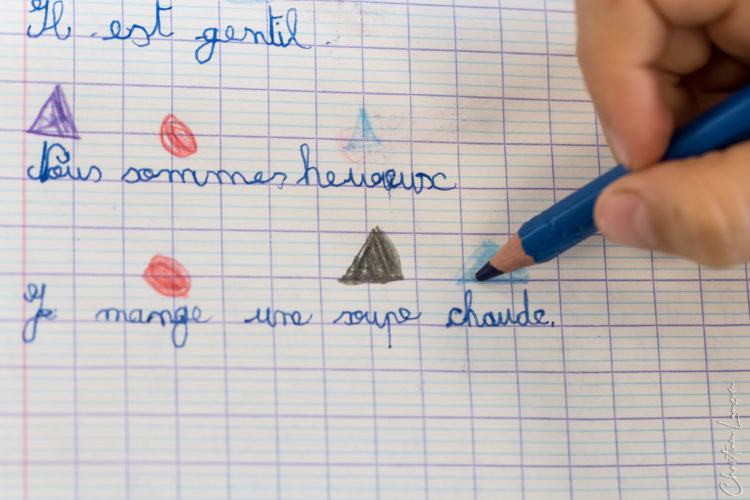 Il est gentil.
Nous sommes heureux
Je mange une soupe chaude.
Christian Lauzin